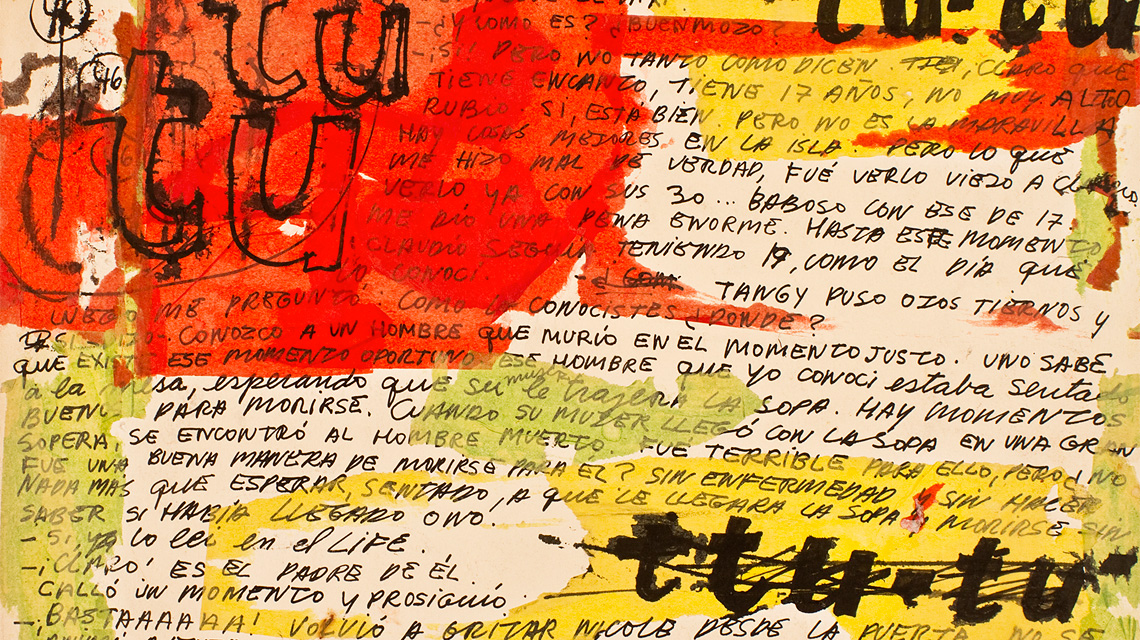 tu tu-tu
-¿Y COMO ES? ¿BUENMOZO?
46
-¡SI! PERO NO TANTO COMO DICEN. CLARO QUE
TIENE ENCANTO, TIENE 17 AÑOS, NO MUY ALTO
tu
RUBIO SI, ESTÁ BIEN. PERO NO ES LA MARAVILLA,
HAY COSAS MEJORES EN LA ISLA. PERO LO QUE
ME HIZO MAL DE VERDAD, FUÉ VERLO VIEJO A CLAUDIO
VERLO YA CON SUS 30... BABOSO CON ESE DE 17
ME DIO UNA PENA ENORME. HASTA ESE MOMENTO
CLAUDIO SEGUIA TENIENDO 19, COMO EL DÍA QUE
LO CONOCI.
TANGY PUSO OJOS TIERNOS Y
LUEGO ME PREGUNTÓ: COMO LO CONOCISTES ¿DONDE?
CONOZCO A UN HOMBRE QUE MURIÓ EN EL MOMENTO JUSTO. UNO SABE
QUE EXISTE ESE MOMENTO OPORTUNO, ESE HOMBRE QUE YO CONOCI estaba sentado
a la mesa, esperando que su mujer le trajera LA SOPA. HAY MOMENTOS
BUENOS PARA MORIRSE. CUANDO SU MUJER LLEGÓ CON LA SOPA EN UNA GRAN
SOPERA, SE ENCONTRÓ AL HOMBRE MUERTO. FUE TERRIBLE PARA ELLO, PERO ¿NO
FUE UNA BUENA MANERA DE MORIRSE PARA EL? SIN ENFERMEDAD Y SIN HACER
NADA MAS QUE ESPERAR, SENTADO, A QUE LE LLEGARA LA SOPA, MORIRSE SIN
SABER SI HABIA LLEGADO O NO.
- SI, YA lo lei en el LIFE.
ttu-tu
-¡CLARO! ES EL PADRE DE ÉL.
CALLÓ UN MOMENTO Y PROSIGUIÓ.
-¡BASTAAAAAA! VOLVIÓ A GRITAR NICOLE DESDE LA PUERTA